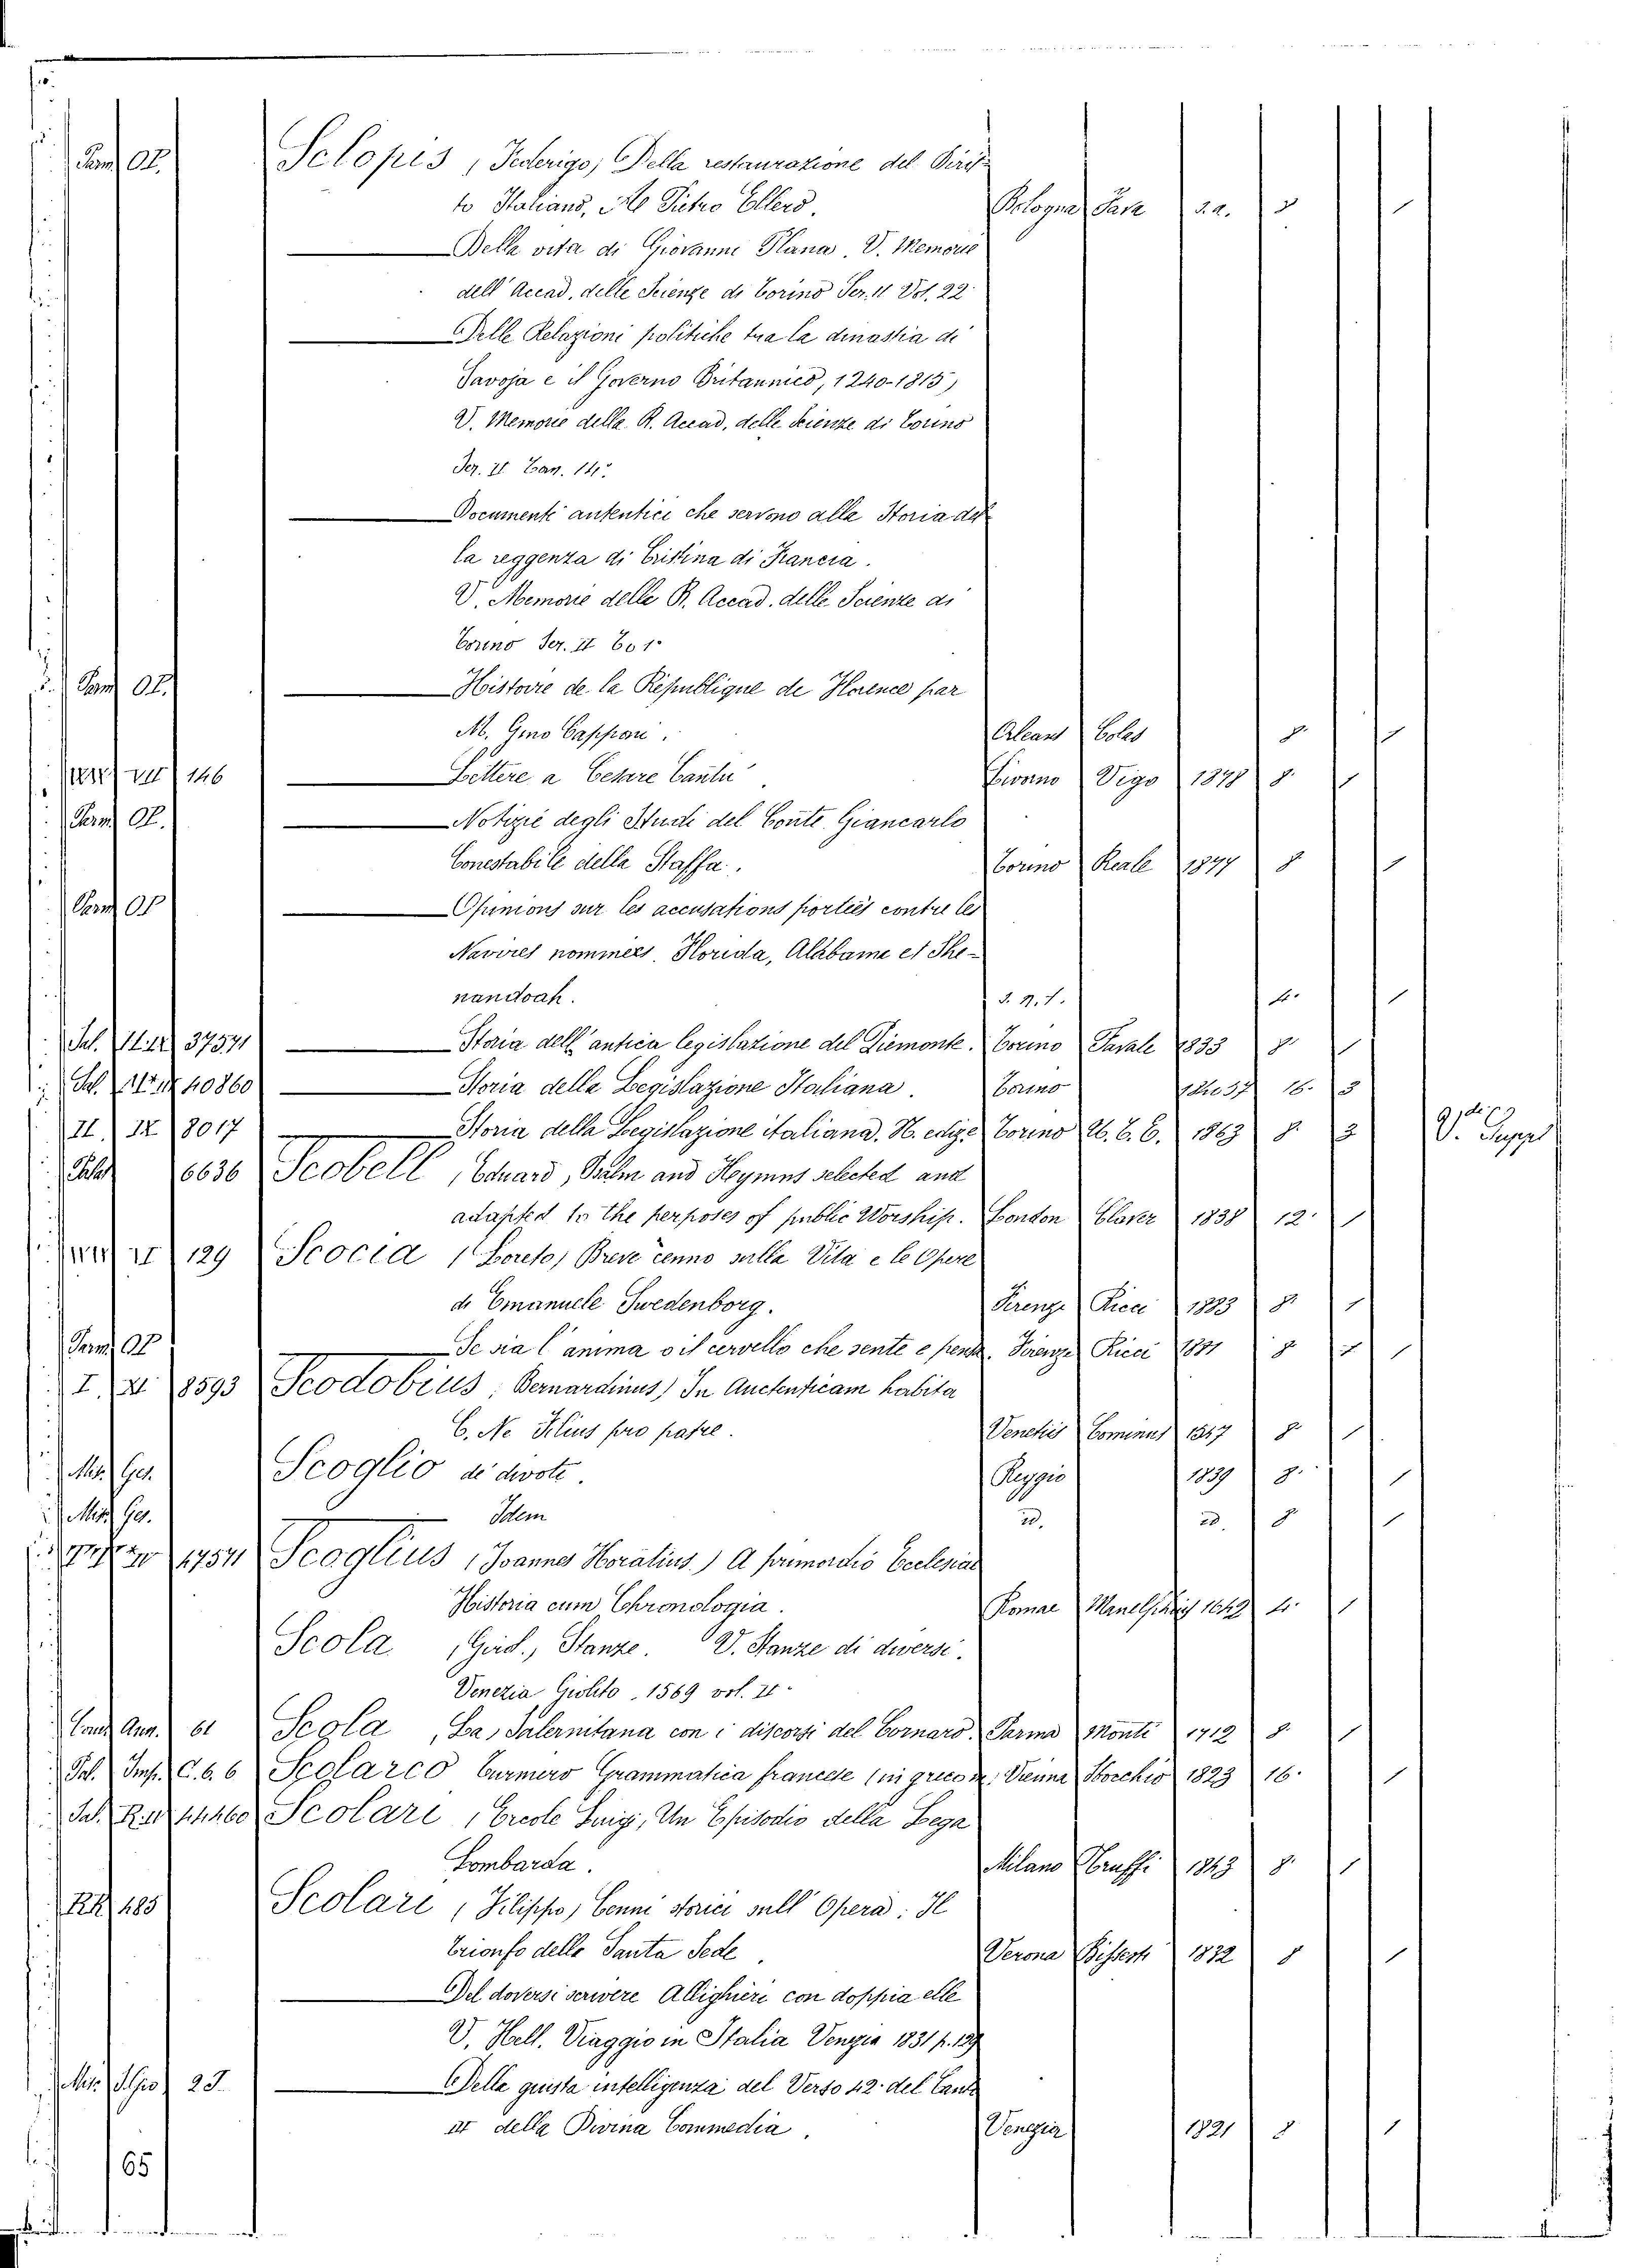 Sclopis, Federigo, Della restaurazione del Dirit-
to Italiano, A Pietro Ellero. Bologna s.a.
Della vita di Giovanni Plana. V. Memorie
dell' Accad. delle Scienze di Torino Ser. II Vol. 22
Delle Relazioni politiche tra la dinastia di
Savoja e il Governo Britannico, 1240-1815)
V. Memorie della R. Accad. delle Scienze di Torino
Ser. II 14.
Documenti autentici che servono alla Storia del
la reggenza di Cristina di Francia.
V. Memorie della R. Accad. delle Scienze di
Torino Ser. II 1°
Histoire de la République de Florence par
M. Gino Capponi. Orleans Colas 8.
VII 146 Lettere a Cesare Cantù Livorno Vigo 1878 8. 1
Notizie degli Studi del Conte Giancarlo
Conestabile della Staffa. Torino Reale 1877 8 1
Opinions sur les accusations portées contre les
Navires nommées. Florida, Alabama et She-
nandoah. 4. 1
37571 Storia dell' antica legislazione del Piemonte. Torino Favale 1833 8. 1
40860 Storia della Legislazione Italiana. Torino 16. 3
II. IX 8017 Storia della Legislazione italiana. Torino U. T. E. 1863 8. 3 V. Suppl
6636 Scobell, Eduard, Psalm and Hymns selected and
adapted to the perposes of public Worship. London 1838 12. 1
129 Scocia, Loreto, Breve cenno sulla Vita e le Opere
di Emanuele Swedenborg. Firenze Ricci 1883 8. 1
Se sia l'anima o il cervello che sente e pensa. Firenze Ricci 8
I. XI 8593 Scodobius, Bernardinus) In Auctenticam habita
C. Ne Filius pro patre. Venetiis Cominus 8 1
Mis. Ger. Scoglio de devote. Reggio 1839 8. 1
Mis. Ger. Idem id. id. 8 1
Scoglius, Joannes Horatius) A primordio Ecclesiae
Historia cum Chronologia. Romae 4. 1
Scola, Gird., Stanze. V. Stanze di diversi.
Venezia Giolito, 1569 vol. II.
61 Scola, La, Salernitana con i discorsi del Cornaro. Parma Monti 1712 8. 1
C. 6. 6 Scolarco Curmero Grammatica francese (in greco m. Vienna 1823 16. 1
44460 Scolari, Ercole Luigi, Un Episodio della Lega
Lombarda. Milano 1843 8. 1
485 Scolari, Filippo, Cenni storici sull' Opera: Il
Trionfo della Santa Sede. Verona 1832 8 1
Del doversi scrivere Allighieri con doppia elle
V. Hell. Viaggio in Italia Venezia 1831 p. 129
Della giusta intelligenza del Verso 42. del Canto
della Divina Commedia. Venezia 1821 8 1
65